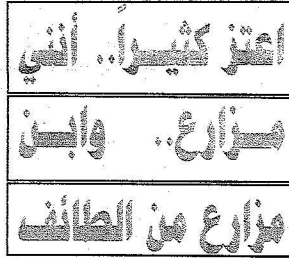 اعتز كثيراً.. أنني
مزارع.. وابن
مزارع من الطائف